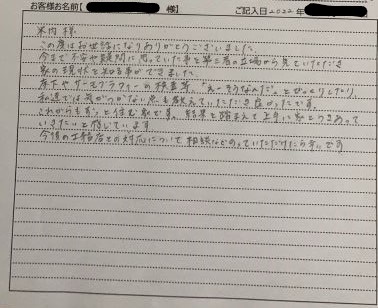 お客様お名前【 様】 ご記入日 2022年
米内 様
この度はお世話になりありがとうございました。
今まで不安や疑問に思っていた事を第三者の立場から見ていただき
家の現状を知る事ができました。
床下やサーモグラフィーの検査等、"えーそうなんだ"とびっくりしたり、
私達では気がつかない点も教えていただき良かったです。
これからもずっと住む家です。結果を踏まえて上手に家とつきあって
いきたいと感じています。
今後の工務店との対応について相談などのっていただけたら幸いです